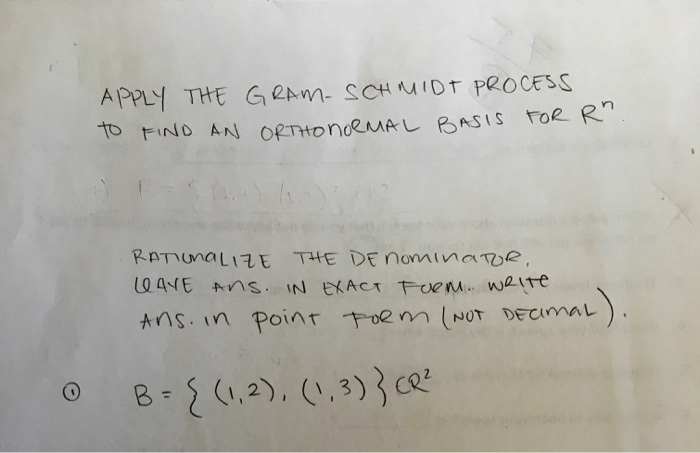 APPLY THE GRAM-SCHMIDT PROCESS
TO FIND AN ORTHONORMAL BASIS FOR Rⁿ.
RATIONALIZE THE DENOMINATOR,
LEAVE ANS. IN EXACT FORM. WRITE
ANS. IN POINT FORM (NOT DECIMAL).
① B = { (1,2), (1,3) } ⊂ R²